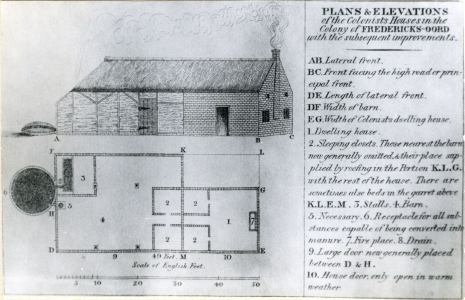 PLANS & ELEVATIONS
of the Colonists Houses in the
Colony of FREDERICKS-OORD
with the subsequent improvements.
AB. Lateral front.
BC. Front facing the high road or prin-
cipal front.
DE. Length of lateral front.
DF. Width of barn.
EG. Width of Colonists dwelling house.
1. Dwelling house.
2. Sleeping closets. Those nearest the barn
now generally omitted, & their place sup-
plied by roofing in the Portion K.L.G.
with the rest of the house. There are
sometimes also beds in the garret above
K.L.E.M. 3. Stalls. 4. Barn.
5. Necessary. 6. Receptacle for all sub-
stances capable of being converted into
manure. 7. Fire place. 8. Drain.
9. Large door now generally placed
between D & H.
10. House door, only open in warm
weather.
A B C
F K L
3
6 8
2 2
G
H 5
1 7
4
2 2
D 9 49 Feet. M 10 E
Scale of English Feet.
10 20 30 40 50